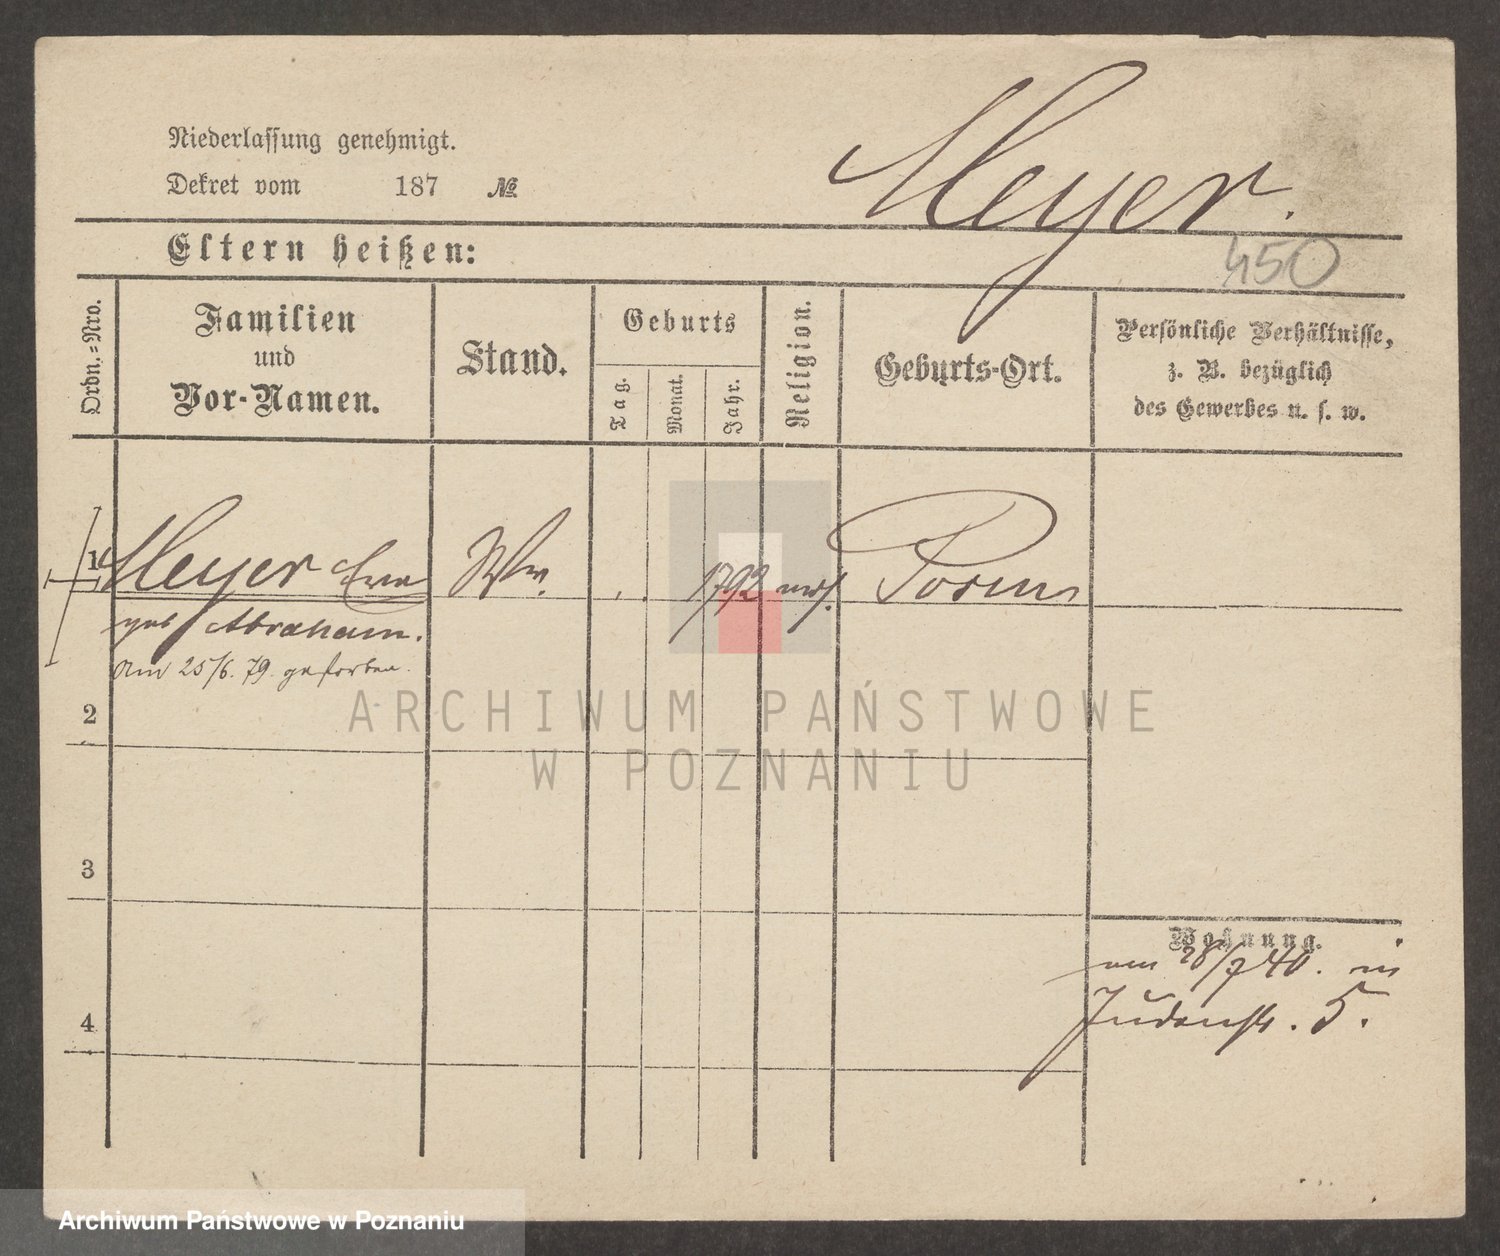 Niederlassung genehmigt.
Dekret vom 187 №
Meyer.
450
Eltern heißen:
Ordn.=Nro.
Familien
und
Vor-Namen.
Stand.
Geburts
Tag.
Monat.
Jahr.
Religion.
Geburts-Ort.
Persönliche Verhältnisse,
z. B. bezüglich
des Gewerbes u. s. w.
1 Meyer Eva Ww. 1792 mos. Posen
geb Abraham.
Am 25/6. 79. gestorben.
2
ARCHIWUM PAŃSTWOWE
W POZNANIU
3
Wohnung.
am 28/7 40. in
Judenstr. 5.
4
Archiwum Państwowe w Poznaniu